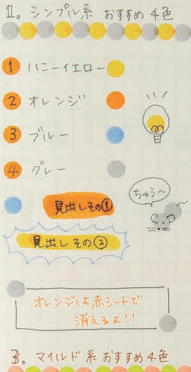 1. シンプル系 おすすめ4色
1 ハニーイエロー
2 オレンジ
3 ブルー
4 グレー
見出しその①
ちゅう〜
見出しその②
オレンジは赤シートで
消えるよ!!
3. マイルド系 おすすめ4色